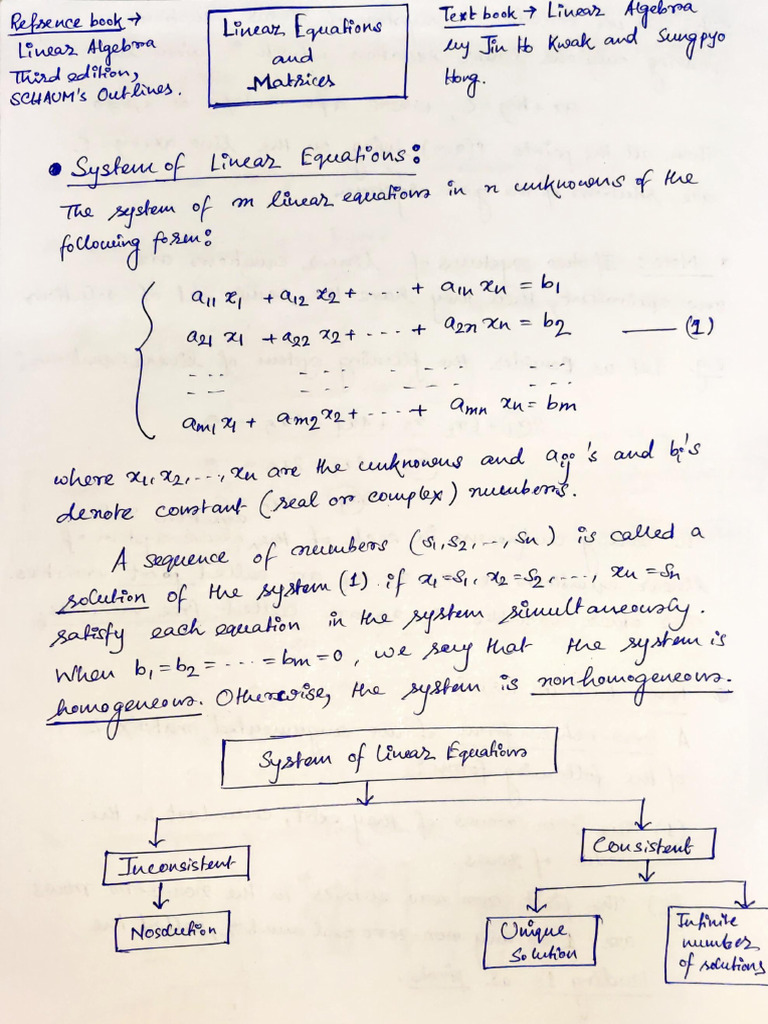 Refsence book →
Linear Algebra
Third edition,
SCHAUM's Outlines.
Linear Equations
and
Matrices
Text book → Linear Algebra
by Jin Ho Kwak and Sungpyo
Hong.
• System of Linear Equations:
The system of m linear equations in n unknowns of the
following form:
a11 x1 + a12 x2 + .... + a1n xn = b1
a21 x1 + a22 x2 + .... + a2n xn = b2 —— (1)
am1 x1 + am2 x2 + .... + amn xn = bm
where x1, x2, ..., xn are the unknowns and aij's and bi's
denote constant (real or complex) numbers.
A sequence of numbers (s1, s2, ..., sn) is called a
solution of the system (1) if x1 = s1, x2 = s2, ...., xn = sn
satisfy each equation in the system simultaneously.
When b1 = b2 = .... = bm = 0, we say that the system is
homogeneous. Otherwise, the system is nonhomogeneous.
System of Linear Equations
Inconsistent
Consistent
No solution
Unique
Solution
Infinite
number
of solutions